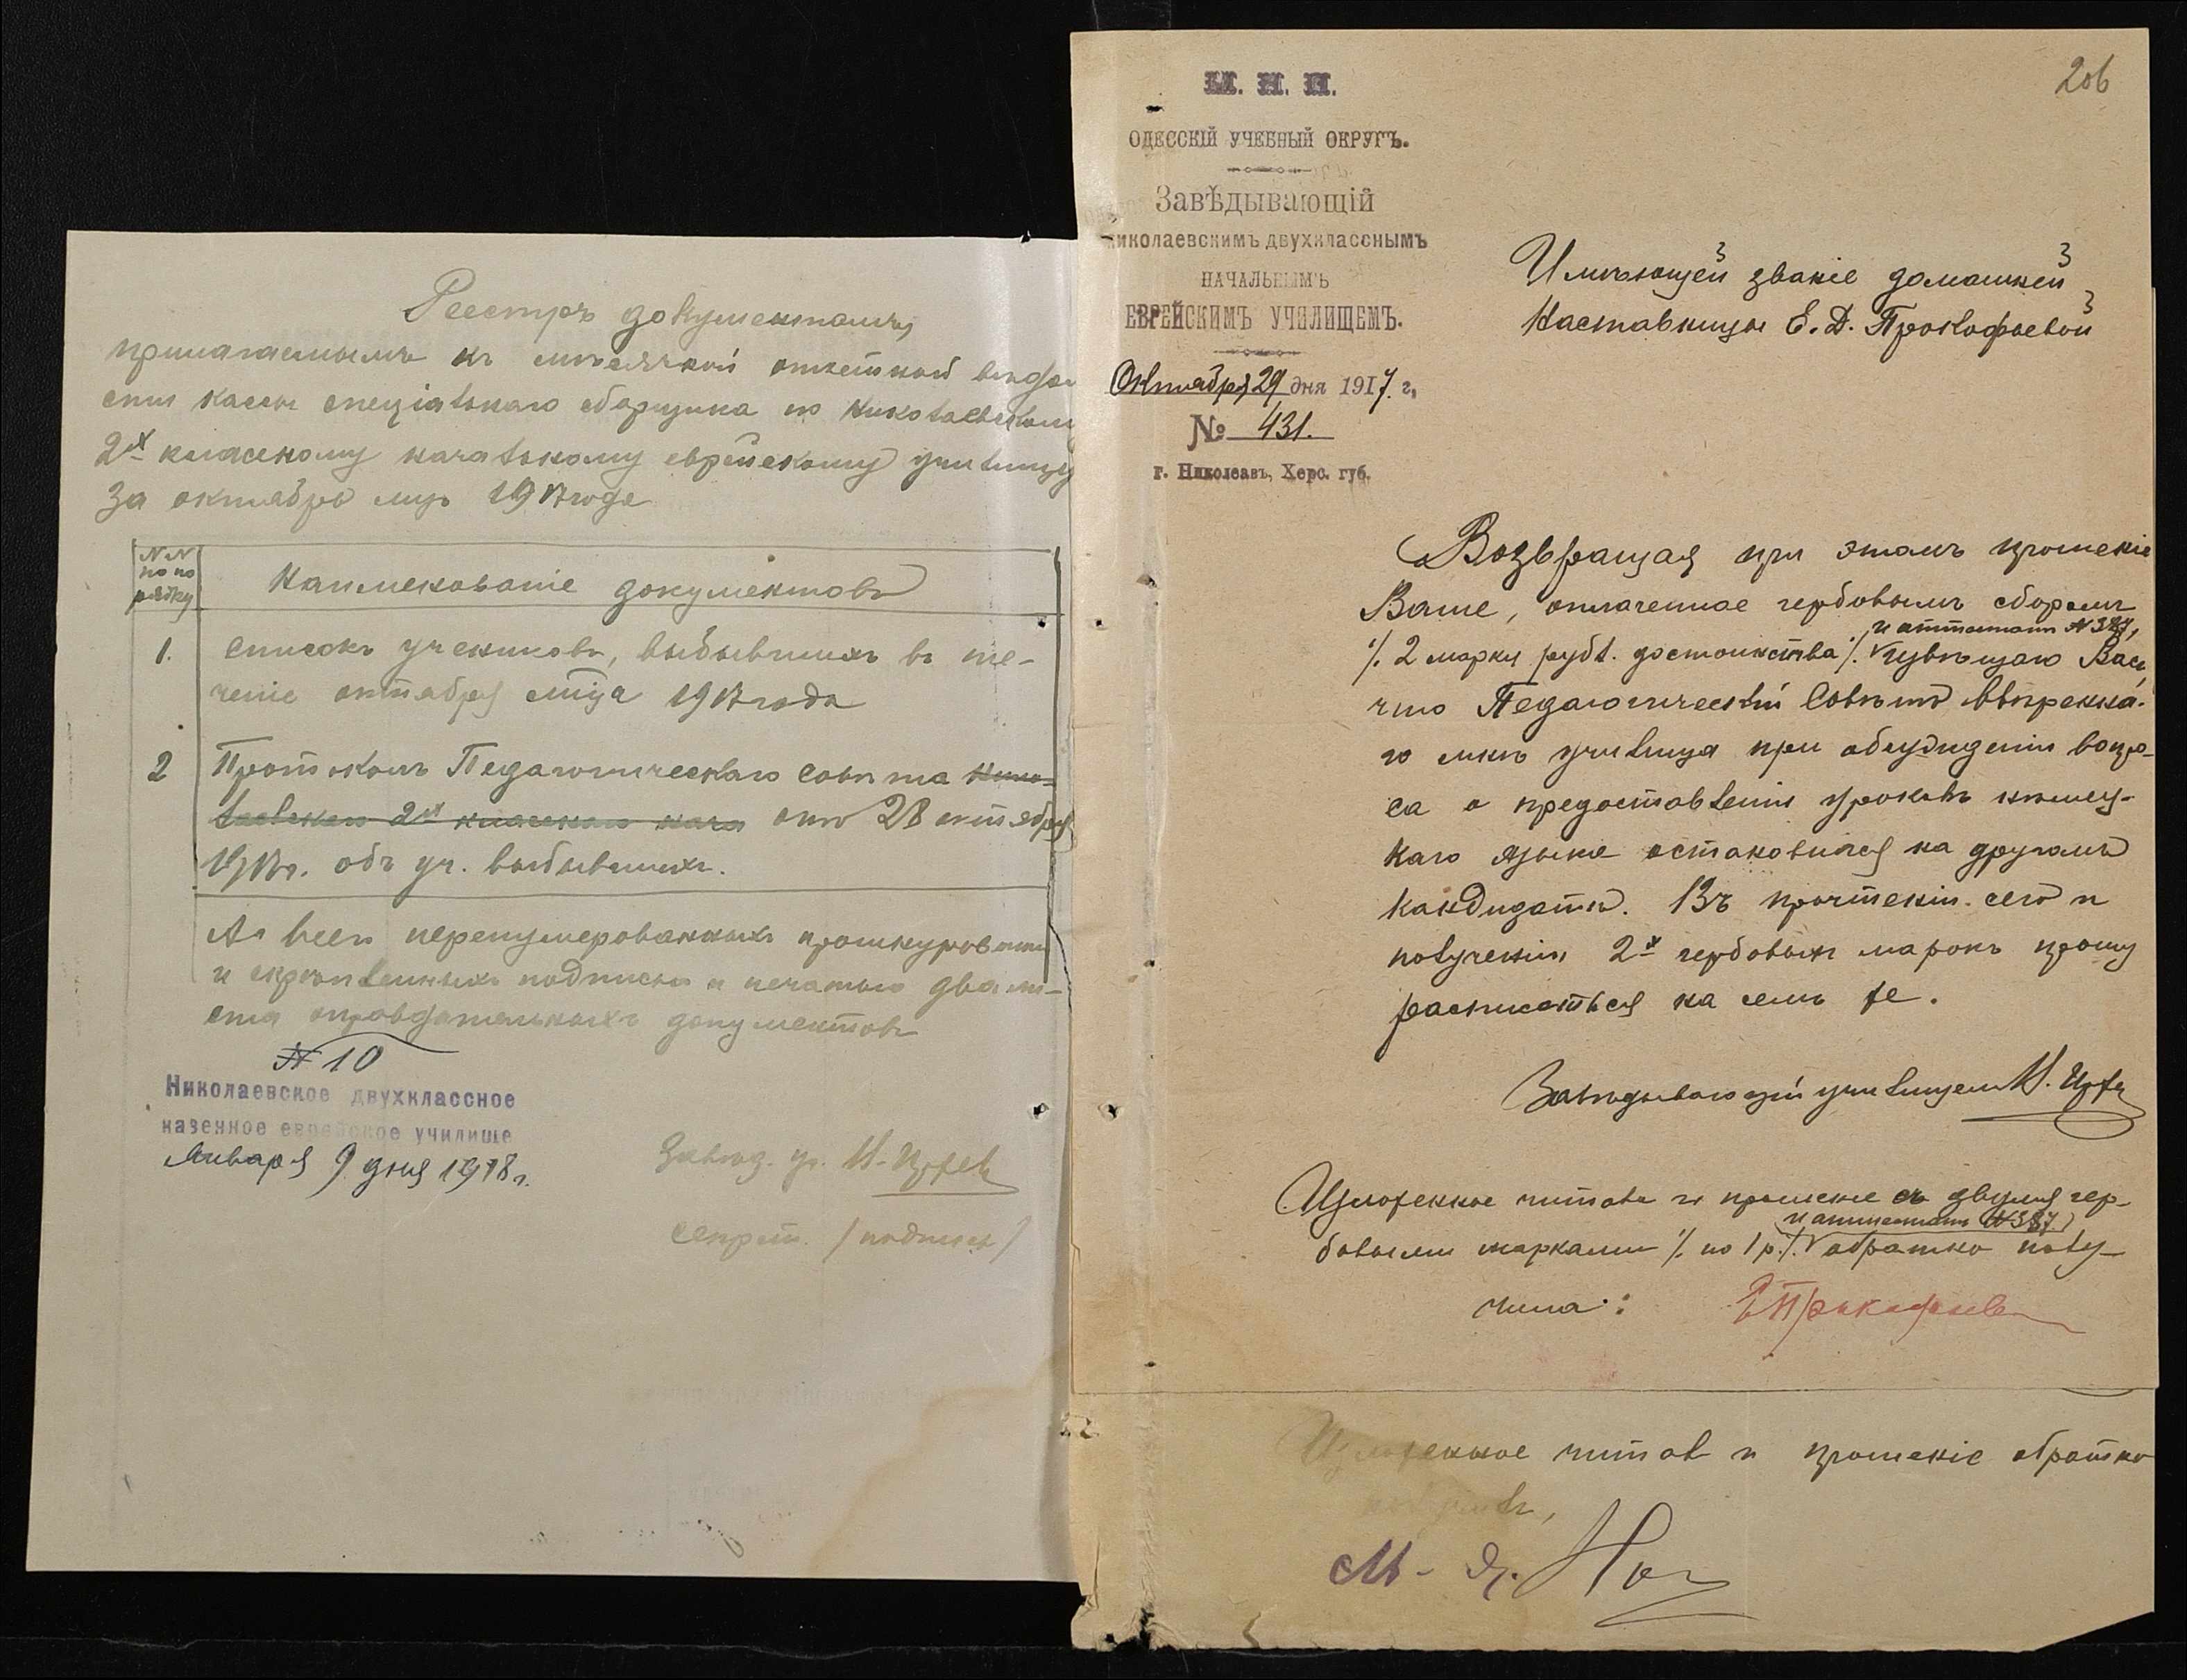 Реестръ документамъ,
прилагаемымъ къ мѣсячной отчетной вѣдомо
сти кассы спеціальнаго сборщика по Николаевскому
2х классному начальному еврейскому училищу
За октябрь мцъ 1917 года
№№ по порядку
Наименованіе документовъ
1. Списокъ учениковъ, выбывшихъ въ те-
ченіе октября мѣца 1917 года
2 Протоколъ Педагогическаго Совѣта Нико-
лаевскаго 2х класснаго нача отъ 28 октября
1917 г. объ уч. выбывшихъ.
А всего перенумерованныхъ прошнурован
и скрѣпленныхъ подписью и печатью два ли-
ста оправдательныхъ документовъ
№ 10
Николаевское двухклассное
казенное еврейское училище
Января 9 дня 1918 г.
Завѣд. уч.
Секрет. /подпись/
206
М. Н. П.
ОДЕССКІЙ УЧЕБНЫЙ ОКРУГЪ.
Завѣдывающій
николаевскимъ двухкласснымъ
НАЧАЛЬНЫМЪ
ЕВРЕЙСКИМЪ УЧИЛИЩЕМЪ.
Октября 29 дня 1917 г.
№ 431.
г. Николаевъ, Херс. губ.
Имѣющей званіе домашней
Наставницы Е. Д. Прокофьевой
Возвращая при этомъ прошеніе
Ваше, оплаченное гербовымъ сборомъ
и аттестатъ № 387,
/. 2 марки рубл. достоинства /. увѣщаю Васъ,
что Педагогическій Совѣтъ ввѣреннa-
го мнѣ училища при обсужденіи вопро-
са о предоставленіи уроковъ нѣмец-
каго языка остановился на другомъ
кандидатѣ. Въ прочтеніи сего и
полученіи 2х гербовыхъ марокъ прошу
расписаться на семъ же.
Завѣдывающій училищемъ
Изложенное читала и прошеніе съ двумя гер-
и аттестатъ № 387
бовыми марками /. по 1 р. /. обратно полу-
чила: ЕПрокофьева
Изложенное читалъ и прошеніе обратно
получилъ,